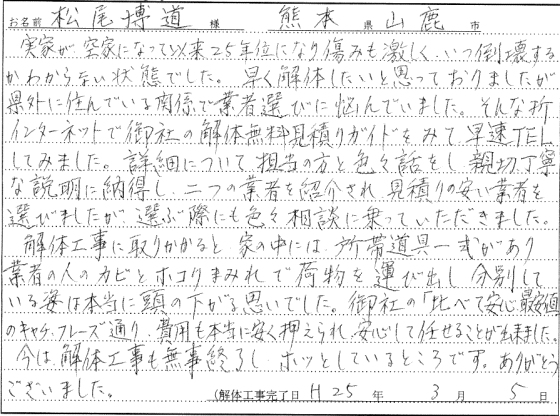 お名前 松尾博道 様 熊本 県 山鹿 市
実家が空家になって以来25年位になり傷みも激しく、いつ倒壊する
かわからない状態でした。早く解体したいと思っておりましたが
県外に住んでいる関係で業者選びに悩んでいました。そんな折
インターネットで御社の解体無料見積りガイドをみて早速TEL
してみました。詳細について担当の方と色々話をし親切丁寧
な説明に納得し、二つの業者を紹介され見積りの安い業者を
選びましたが、選ぶ際にも色々相談に乗っていただきました。
解体工事に取りかかると家の中には、所帯道具一式があり
業者の人のカビとホコリまみれで荷物を運び出し分別して
いる姿は本当に頭の下がる思いでした。御社の「比べて安心最安値
のキャチ、フレーズ通り、費用も本当に安く押えられ、安心して任せることが出来ました。
今は、解体工事も無事終了し、ホッとしているところです。ありがとう
ございました。 (解体工事完了日 H25 年 3 月 5 日